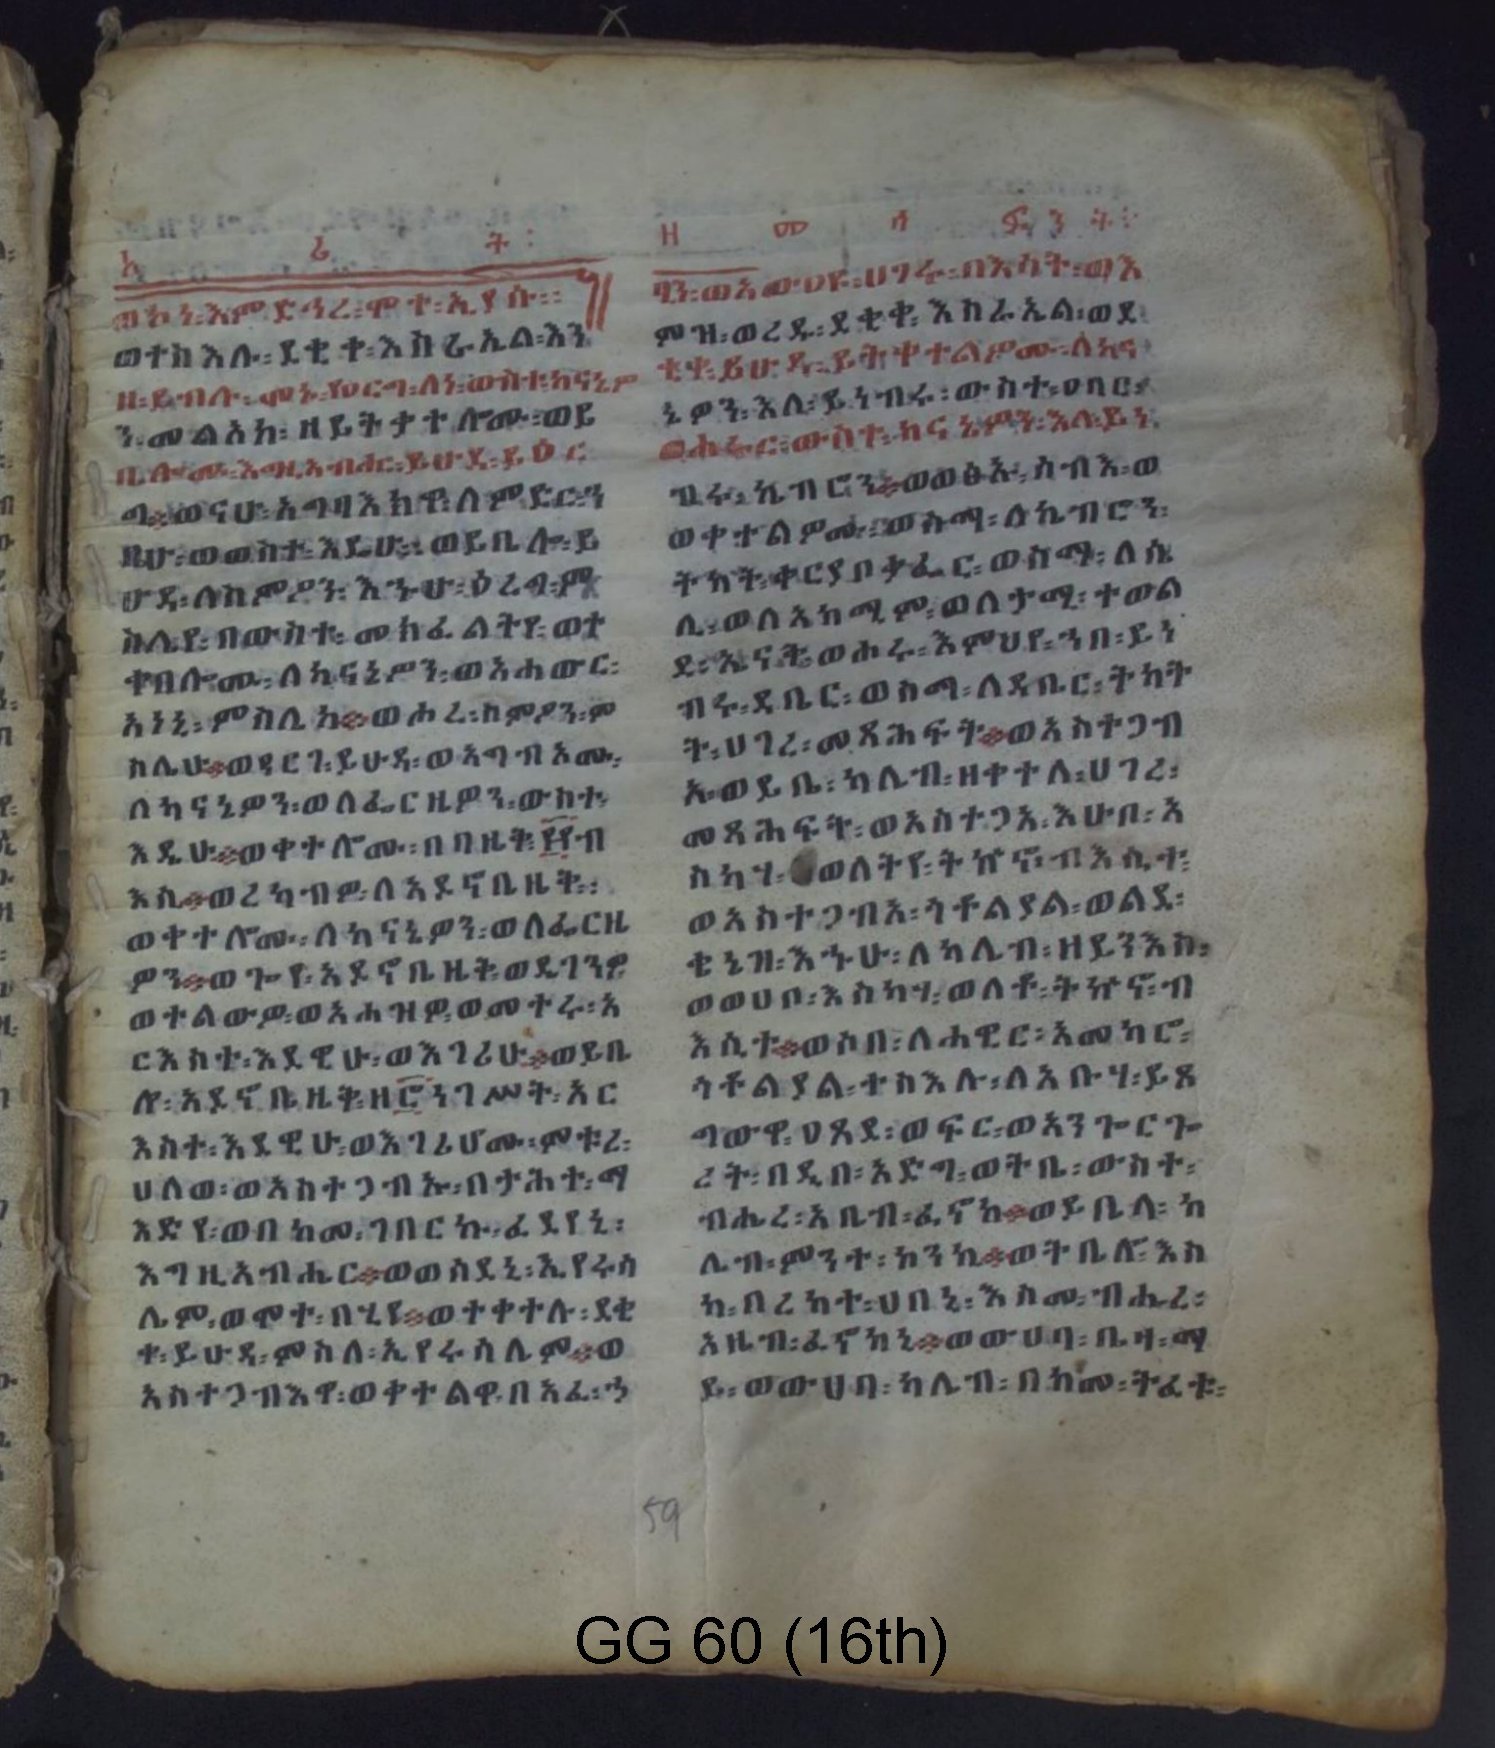 ኦ ሪ ት ፡ ዘ መ ሳ ፍ ን ት ፡
ወኮነ ፡ እምድኅረ ፡ ሞተ ፡ ኢያሱ ፡፡
ወተስእሉ ፡ ደቂቀ ፡ እስራኤል ፡ እን
ዘ ፡ ይብሉ ፡ መኑ ፡ የዐርግ ፡ ለነ ፡ ውስተ ፡ ከናኔዎ
ን ፡ መልአከ ፡ ዘይትቃተሎሙ ፡ ወይ
ቤሎሙ ፡ እግዚአብሔር ፡ ይሁዳ ፡ ይዕር
ግ ። ወናሁ ፡ አግባእክዋ ፡ ለምድር ፡ ን
ባሁ ፡ ወውስተ ፡ እዴሁ ፡ ወይቤሎ ፡ ይ
ሁዳ ፡ ለስምዖን ፡ እኁሁ ፡ ዕረግ ፡ ም
ስሌየ ፡ በውስተ ፡ መክፈልትየ ፡ ወት
ቀበሎሙ ፡ ለካናኔዎን ፡ ወአሐውር ፡
አነኒ ፡ ምስሌከ ። ወሖረ ፡ ስምዖን ፡ ም
ስሌሁ ። ወዓርገ ፡ ይሁዳ ፡ ወአግብአሙ ፡
ለካናኔዎን ፡ ወለፌርዜዎን ፡ ውስተ ፡
እዴሁ ። ወቀተሎሙ ፡ በባዜቅ ፡ ፼ብ
እሲ ። ወረካብዎ ፡ ለአዶኖቤዜቅ ፡
ወቀተሎሙ ፡ ለካናኔዎን ፡ ወለፌርዜ
ዎን ። ወጐየ ፡ አዶኖቤዜቅ ፡ ወዴገንዎ
ወተልውዎ ፡ ወአሐዝዎ ፡ ወመተሩ ፡ አ
ርእስተ ፡ እደዊሁ ፡ ወእገሪሁ ። ወይቤ
ሎ ፡ አዶኖቤዜቅ ፡ ዘ፸ንገሥት ፡ አር
እስተ ፡ እደዊሁ ፡ ወእገሪሆሙ ፡ ምቱረ ፡
ሀለወ ፡ ወአስተጋብኡ ፡ በታሕተ ፡ ማ
እድየ ፡ ወበከመ ፡ ገበርኩ ፡ ፈደየኒ ፡
እግዚአብሔር ። ወወሰደኒ ፡ ኢየሩሳ
ሌም ፡ ወሞተ ፡ በሂየ ። ወተቀተሉ ፡ ደቂ
ቀ ፡ ይሁዳ ፡ ምስለ ፡ ኢየሩሳሌም ። ወ
አስተጋብእዋ ፡ ወቀተልዋ ፡ በአፈ ፡ ኀ
ፂን ፡ ወአውዐዩ ፡ ሀገሩ ፡ በእሳት ፡ ወእ
ምዝ ፡ ወረዱ ፡ ደቂቀ ፡ እስራኤል ፡ ወደ
ቂቀ ፡ ይሁዳ ፡ ይትቀተልዎሙ ፡ ለከና
ኔዎን ፡ እለ ፡ ይነብሩ ፡ ውስተ ፡ ዐባር ፡
ወሐሩር ፡ ውስተ ፡ ከናኔዎን ፡ እለ ፡ ይነ
ብሩ ፡ ኬብሮን ። ወወፅኡ ፡ ሰብእ ፡ ወ
ወቀተልዎሙ ፡ ወስማ ፡ ለኬብሮን ፡
ትካት ፡ ቀርያቦቃፌር ፡ ወስማ ፡ ለሴ
ሲ ፡ ወለአከሚም ፡ ወለታሚ ፡ ተወል
ደ ፡ ኤናቅ ፡ ወሖሩ ፡ እምህየ ፡ ኀበ ፡ ይነ
ብሩ ፡ ዳቤር ፡ ወስማ ፡ ለዳቤር ፡ ትካት
ት ፡ ሀገረ ፡ መጻሕፍት ። ወአስተጋብ
ኡ ፡ ወይቤ ፡ ካሌብ ፡ ዘቀተለ ፡ ሀገረ ፡
መጻሕፍት ፡ ወአስተጋእ ፡ እሁቦ ፡ አ
ስካሃ ፡ ወለትየ ፡ ትኩኖ ፡ ብእሲተ ፡
ወአስተጋብአ ፡ ጎቶልያል ፡ ወልደ ፡
ቄኔዝ ፡ እኁሁ ፡ ለካሌብ ፡ ዘይንእስ ፡
ወወሀቦ ፡ እስካሃ ፡ ወለቶ ፡ ትኩኖ ፡ ብ
እሲተ ። ወሶበ ፡ ለሐዊር ፡ አመካሮ ፡
ጎቶልያል ፡ ተስእሎ ፡ ለአቡሃ ፡ ይጸ
ግውዋ ፡ ዐጸደ ፡ ወፍር ፡ ወአንጐርጐ
ረት ፡ በዲበ ፡ አድግ ፡ ወትቤ ፡ ውስተ ፡
ብሔረ ፡ አዜብ ፡ ፈኖከ ። ወይቤላ ፡ ካ
ሌብ ፡ ምንተ ፡ ኮንኪ ። ወትቤሎ ፡ እስ
ከ ፡ በረካተ ፡ ሀበኒ ፡ እስመ ፡ ብሔረ ፡
አዜብ ፡ ፈኖከኒ ። ወውሀባ ፡ ቤዛ ፡ ማ
ይ ፡ ወውሀባ ፡ ካሌብ ፡ በከመ ፡ ትፈቱ ፡
59
GG 60 (16th)